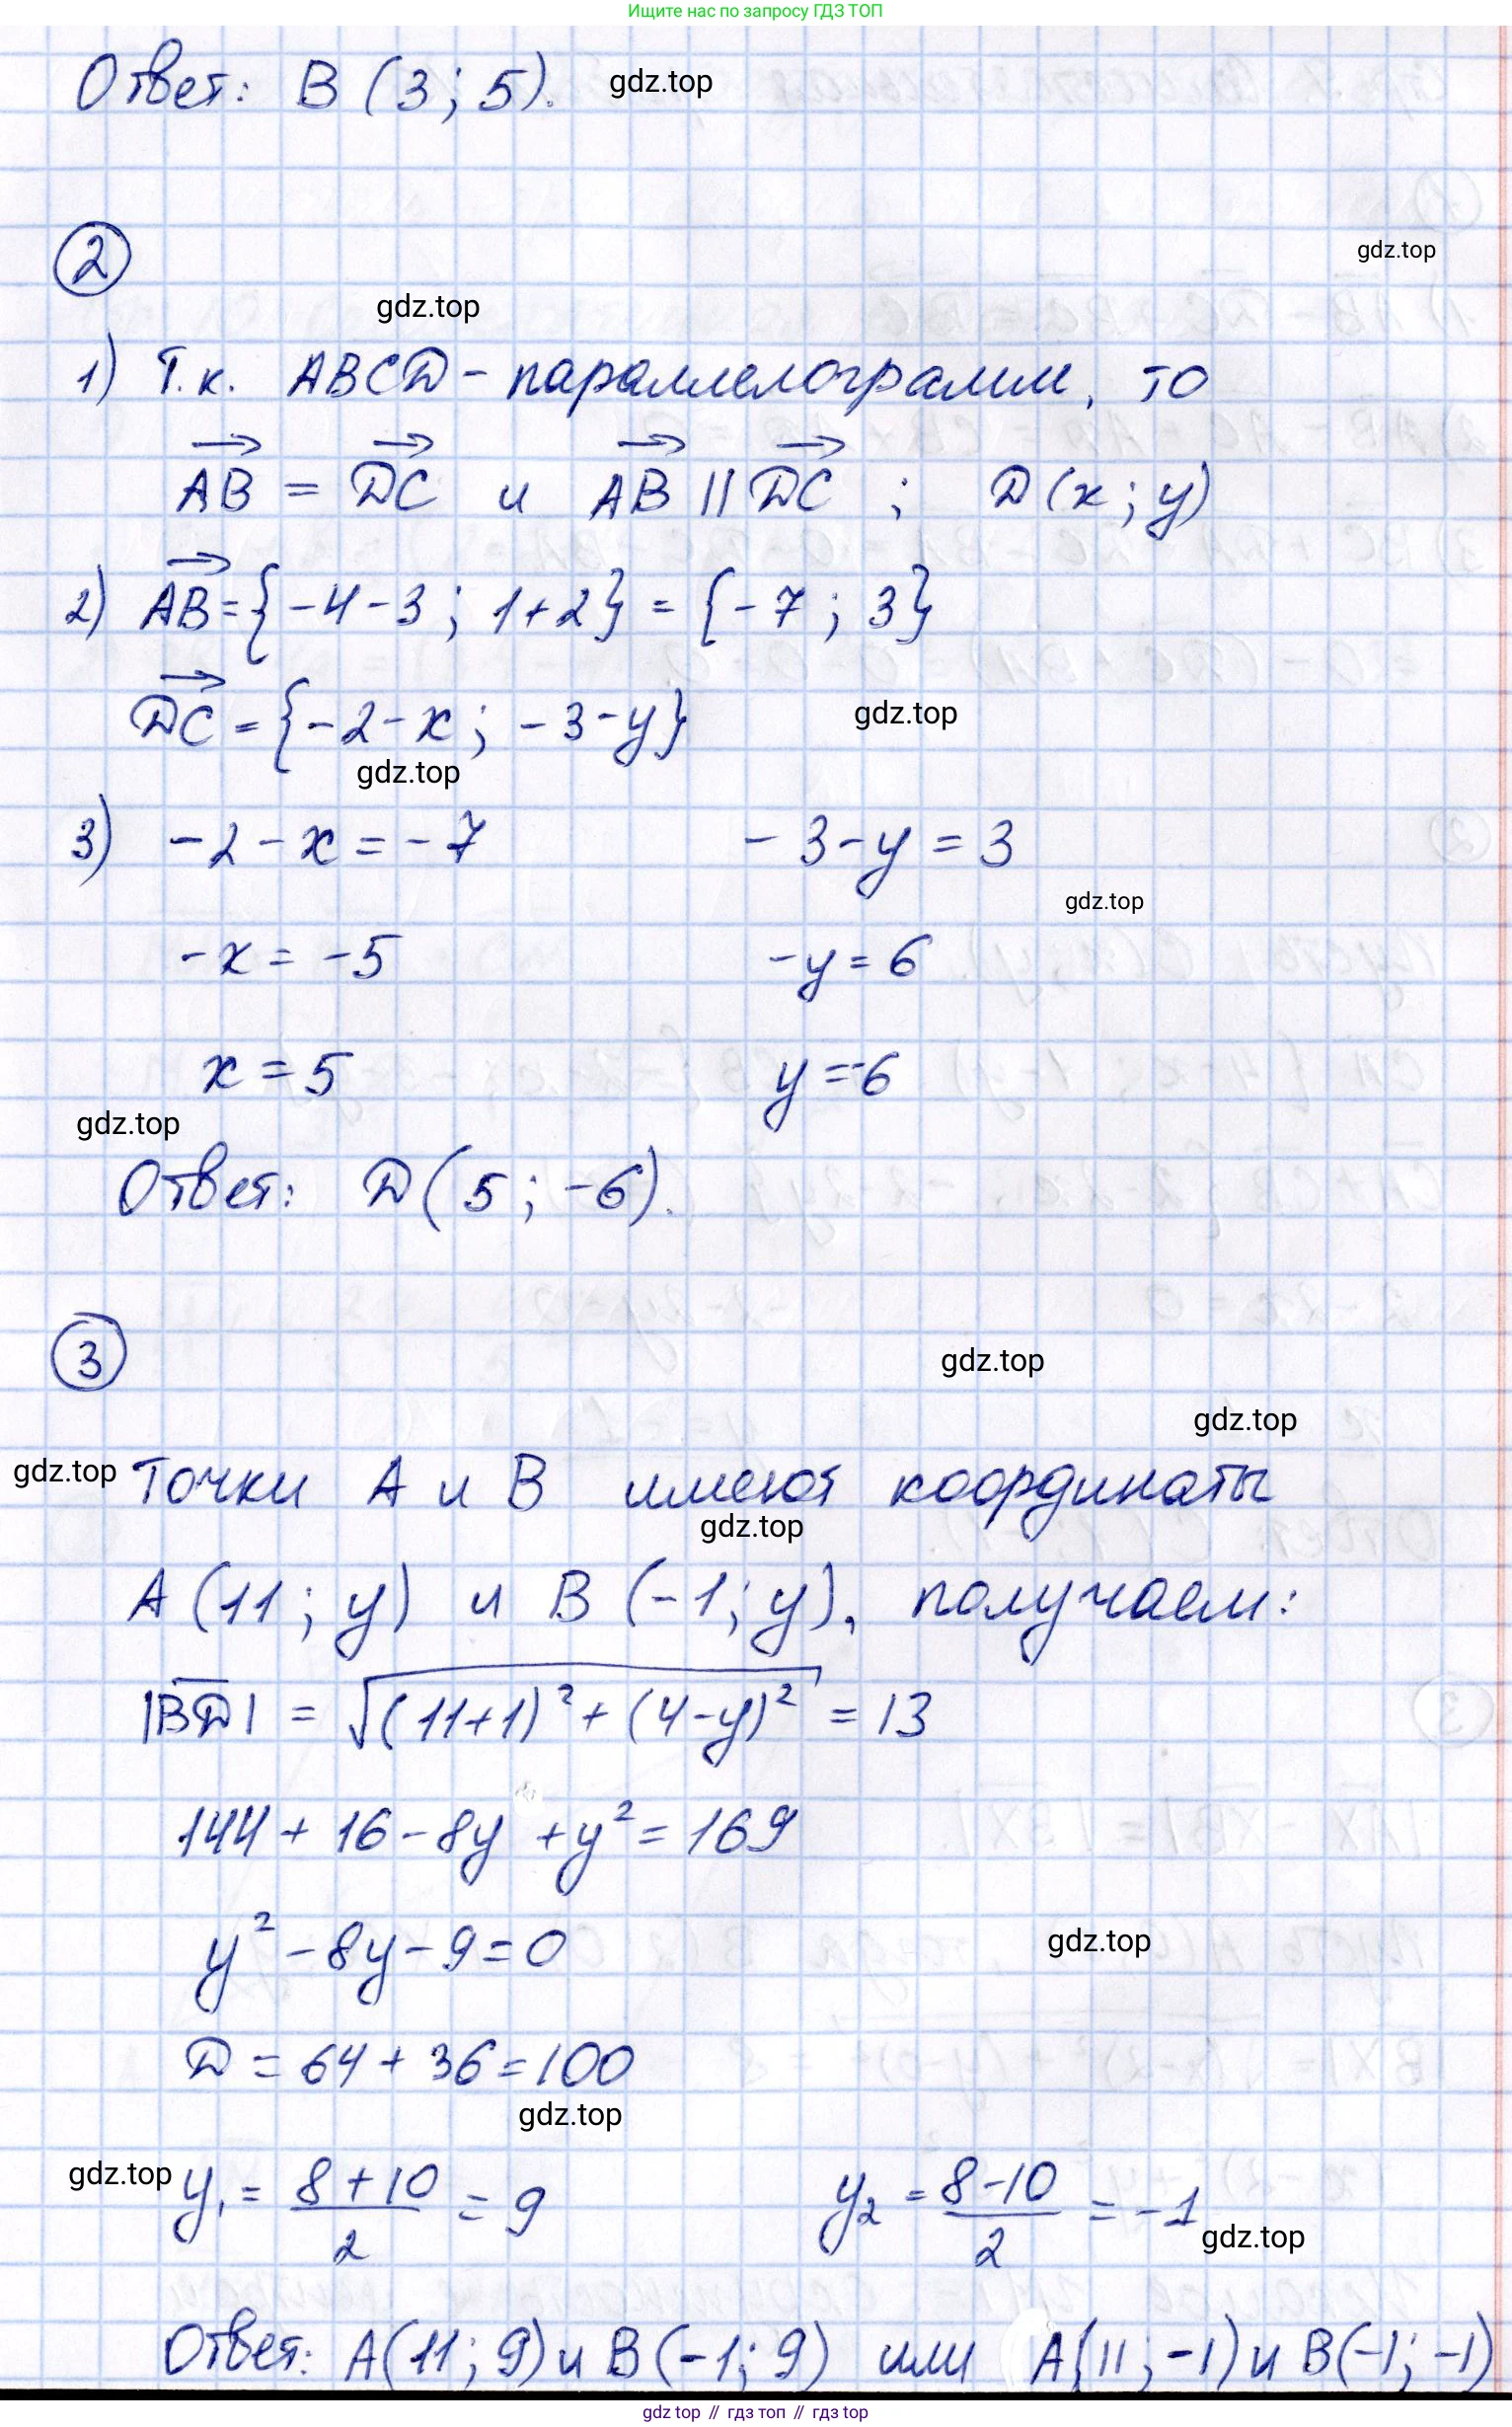 Ищите нас по запросу ГДЗ ТОП
Ответ: B (3; 5). gdz.top
2
gdz.top
gdz.top
1) Т.к. ABCD - параллелограмм, то
AB = DC и AB || DC ; D(x; y)
2) AB = {-4-3; 1+2} = {-7; 3}
DC = {-2-x; -3-y}
gdz.top
gdz.top
3) -2-x = -7 -3-y = 3
gdz.top
-x = -5 -y = 6
x = 5 y = -6
gdz.top
Ответ: D(5; -6).
3
gdz.top
gdz.top
gdz.top Точки A и B имеют координаты
gdz.top
A (11; y) и B (-1; y), получаем:
|BD| = √(11+1)² + (4-y)² = 13
144 + 16 - 8y + y² = 169
y² - 8y - 9 = 0
gdz.top
D = 64 + 36 = 100
gdz.top
gdz.top y₁ = (8+10)/2 = 9 y₂ = (8-10)/2 = -1
gdz.top
Ответ: A(11; 9) и B(-1; 9) или A(11; -1) и B(-1; -1)
gdz top // гдз топ // гдз top